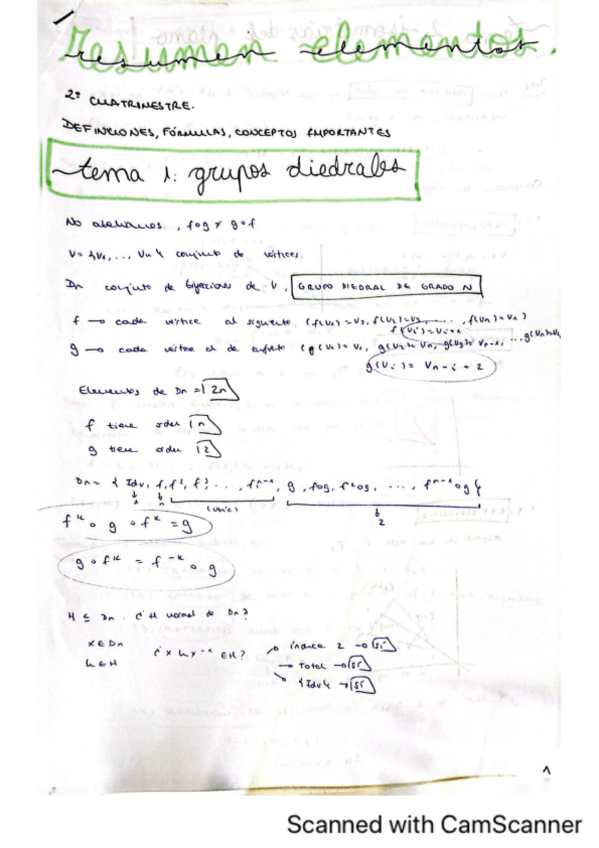 Resumen elementos.
2º CUATRIMESTRE.
DEFINICIONES, FÓRMULAS, CONCEPTOS IMPORTANTES
tema 1: grupos diedrales
No abelianos, fog ≠ gof
V = {V₁, ..., Vn} conjunto de vértices.
Dn conjunto de biyecciones de V, GRUPO DIEDRAL DE GRADO N
f → cada vértice al siguiente. (f(V₁)=V₂, f(V₂)=V₃, ..., f(Vn)=V₁)
f(Vi)=Vi+1
g → cada vértice al de enfrente (g(V₁)=V₁, g(V₂)=Vn, g(V₃)=Vn-1, ..., g(Vn)=V₂)
g(Vi) = Vn-i+2
Elementos de Dn = 2n
f tiene orden n
g tiene orden 2
Dn = { Idv, f, f², f³, ..., fⁿ⁻¹, g, fog, f²og, ..., fⁿ⁻¹og }
1 n
2
fᵏ o g o fᵏ = g
g o fᵏ = f⁻ᵏ o g
H ≤ Dn. ¿H normal de Dn?
x ∈ Dn
h ∈ H
¿xhx⁻¹ ∈ H?
índice 2 → sí
Total → sí
{Idv} → sí
1
Scanned with CamScanner